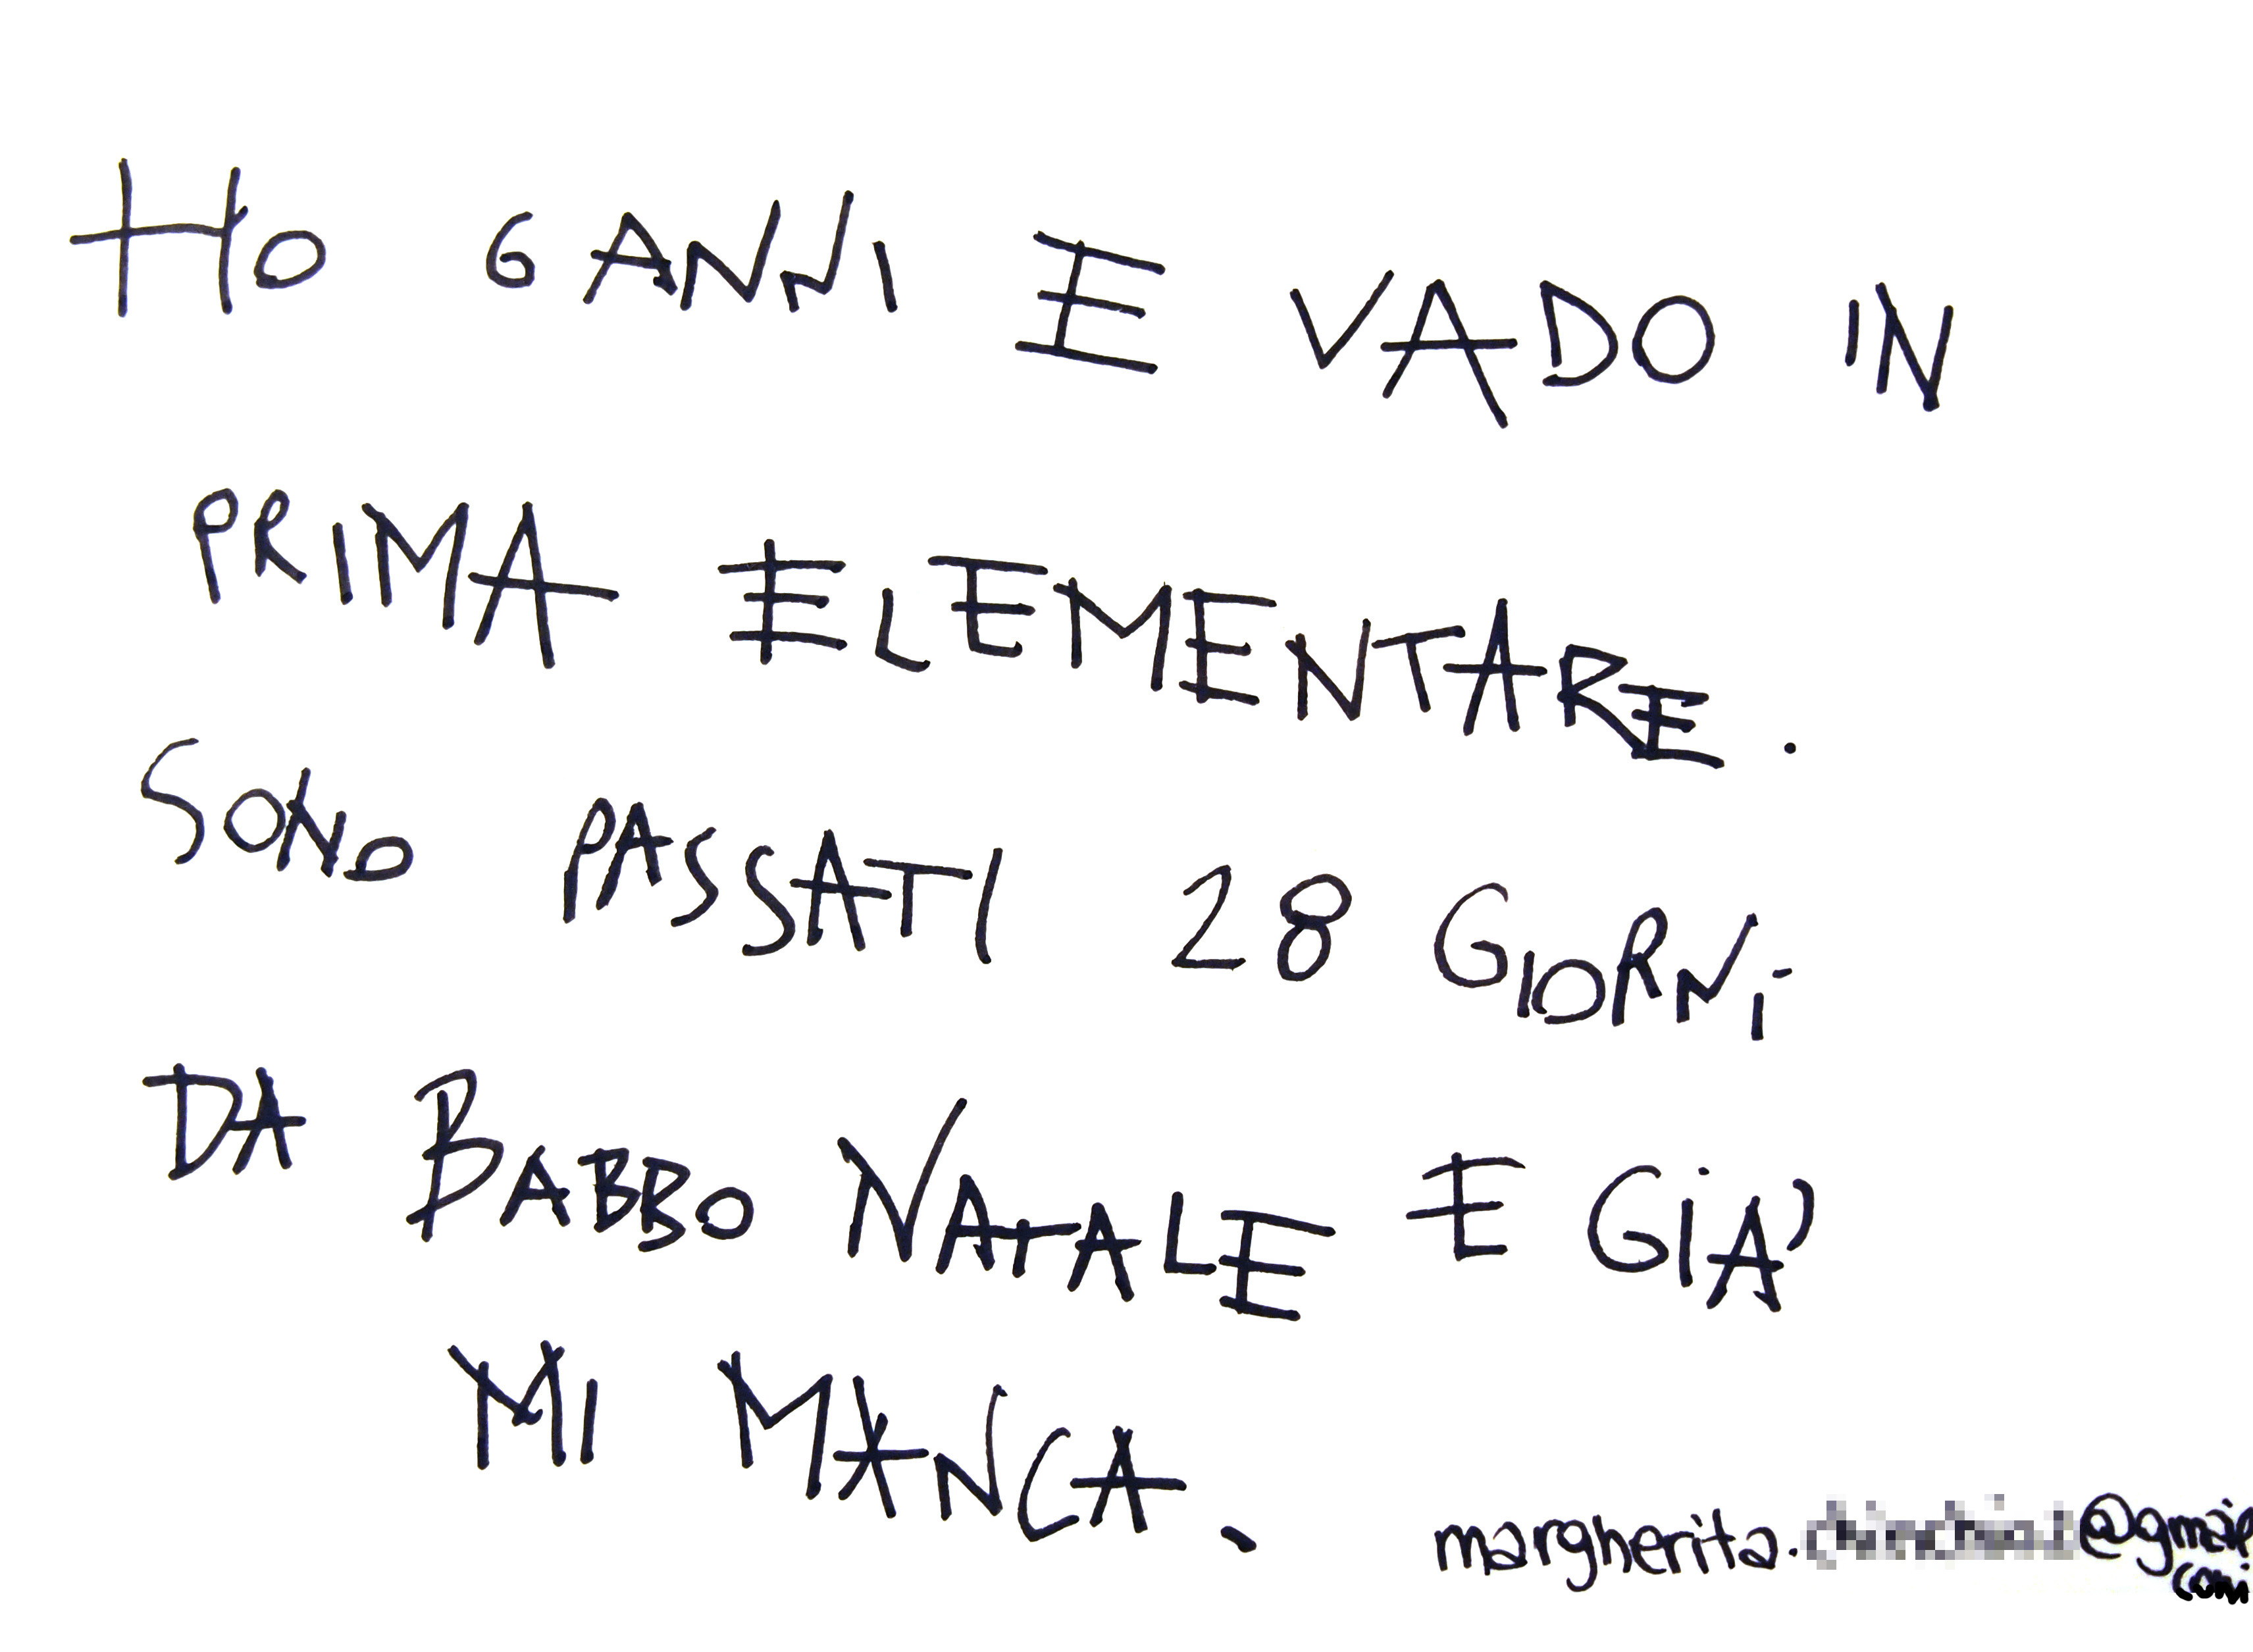 HO 6 ANNI E VADO IN
PRIMA ELEMENTARE.
SONO PASSATI 28 GIORNI
DA BABBO NATALE E GIA'
MI MANCA.
margherita.
@gmail
com